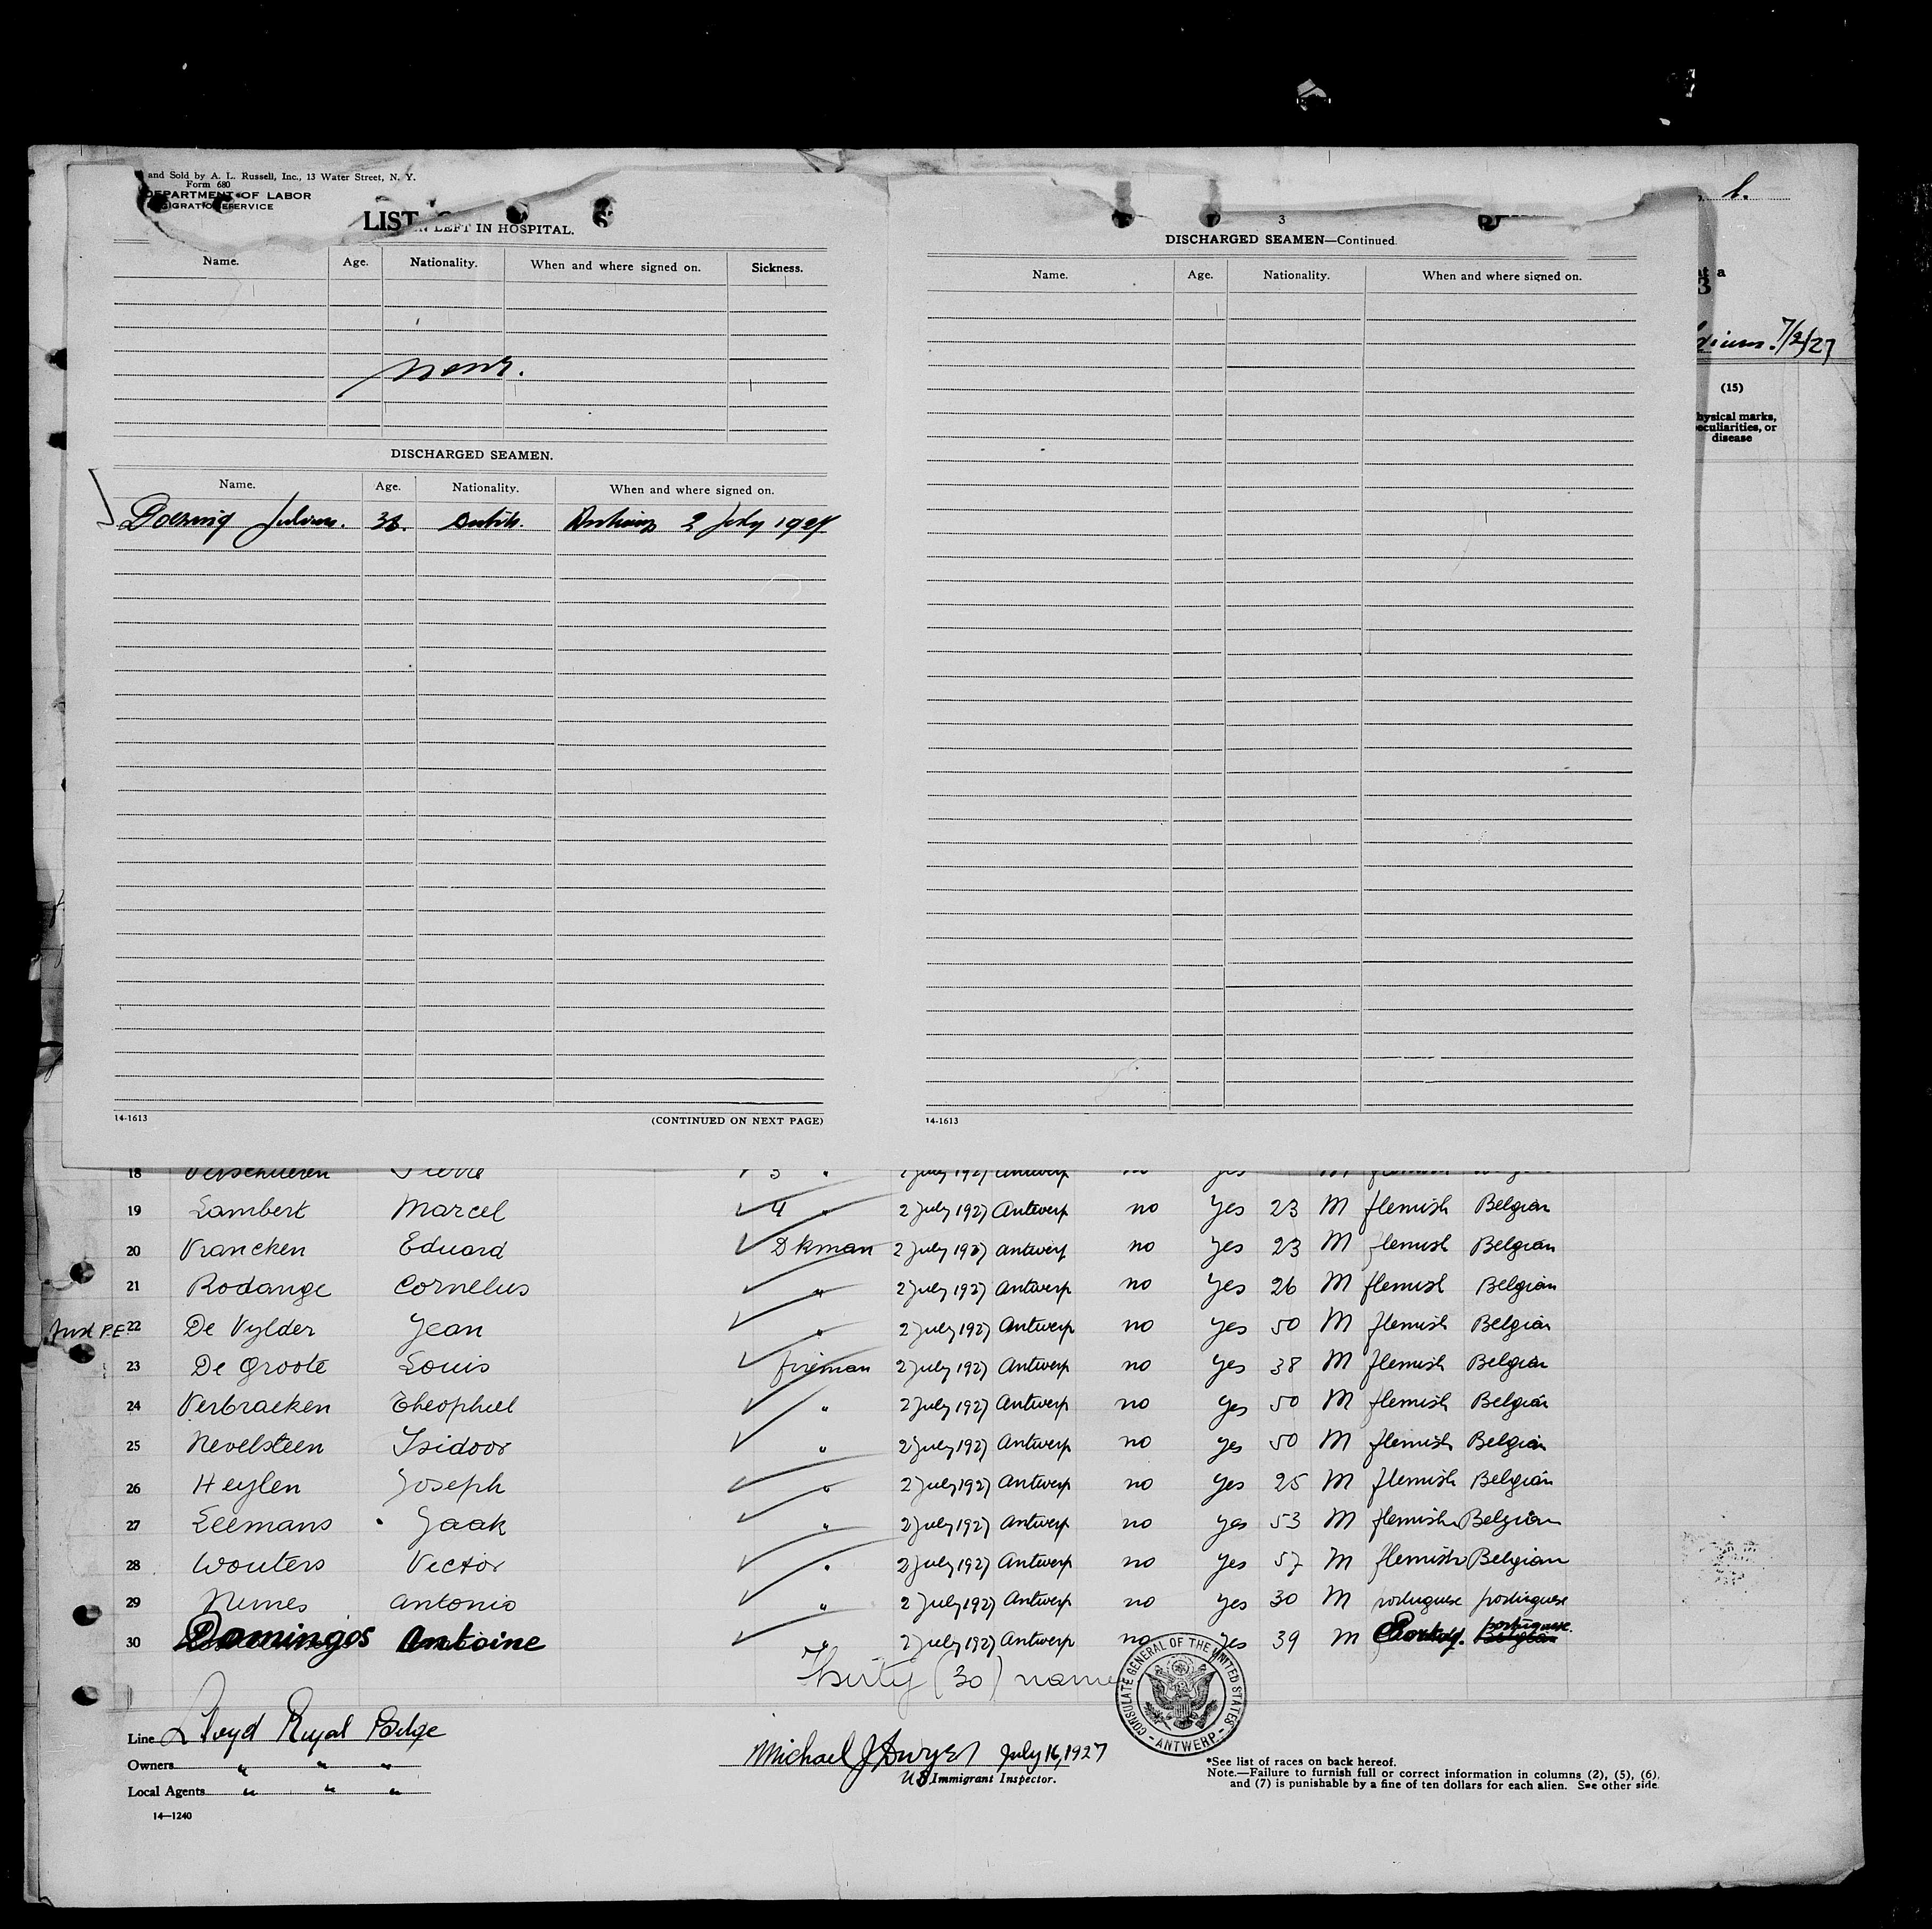 and Sold by A. L. Russell, Inc., 13 Water Street, N. Y.
Form 680
DEPARTMENT OF LABOR
LIST
LEFT IN HOSPITAL.
Name. Age. Nationality. When and where signed on. Sickness.
None.
DISCHARGED SEAMEN.
Name. Age. Nationality. When and where signed on.
Doering Julius. 2 July 1927
14-1613 (CONTINUED ON NEXT PAGE)
3
DISCHARGED SEAMEN—Continued.
Name. Age. Nationality. When and where signed on.
14-1613
7/2/27
(15)
hysical marks,
eculiarities, or
disease
18 Verschueren Pierre 3 " 2 July 1927 Antwerp no yes M flemish Belgian
19 Lambert Marcel 4 " 2 July 1927 Antwerp no yes 23 M flemish Belgian
20 Vrancken Eduard Dkman 2 July 1927 Antwerp no yes 23 M flemish Belgian
21 Rodange Cornelius " 2 July 1927 Antwerp no yes 26 M flemish Belgian
22 De Vylder Jean " 2 July 1927 Antwerp no yes 50 M flemish Belgian
23 De Groote Louis fireman 2 July 1927 Antwerp no yes 38 M flemish Belgian
24 Verbraeken Theophiel " 2 July 1927 Antwerp no yes 50 M flemish Belgian
25 Nevelsteen Isidoor " 2 July 1927 Antwerp no yes 50 M flemish Belgian
26 Heylen Joseph " 2 July 1927 Antwerp no yes 25 M flemish Belgian
27 Leemans Jaak " 2 July 1927 Antwerp no yes 53 M flemish Belgian
28 Wouters Vector " 2 July 1927 Antwerp no yes 57 M flemish Belgian
29 Nunes Antonio " 2 July 1927 Antwerp no yes 30 M portuguese portuguese
30 Domingos Antoine " 2 July 1927 Antwerp no yes 39 M Portug. portuguese.
Thirty (30) names
CONSULATE GENERAL OF THE UNITED STATES
- ANTWERP -
Line Lloyd Royal Belge
Owners " " "
Local Agents " " "
14—1240
Michael J Dwyer July 16, 1927
US Immigrant Inspector.
*See list of races on back hereof.
Note.—Failure to furnish full or correct information in columns (2), (5), (6),
and (7) is punishable by a fine of ten dollars for each alien. See other side.